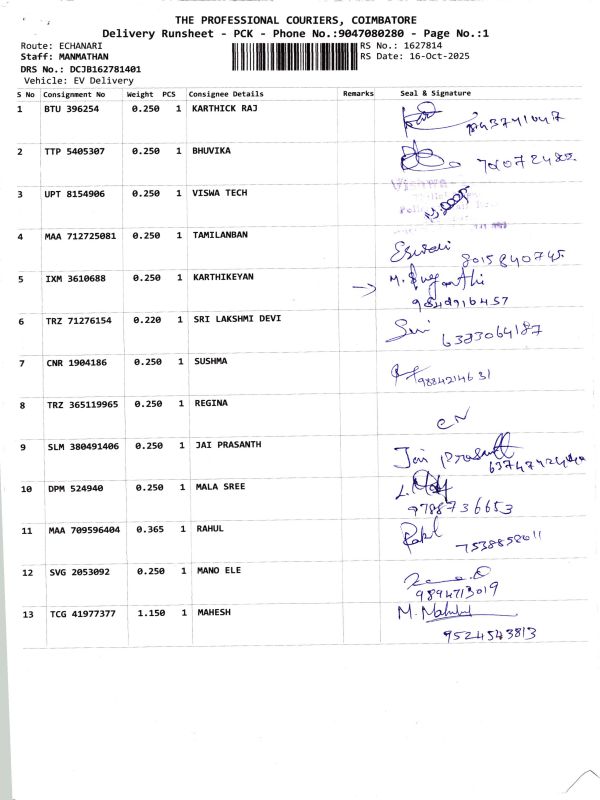 THE PROFESSIONAL COURIERS, COIMBATORE
Delivery Runsheet - PCK - Phone No.:9047080280 - Page No.:1
Route: ECHANARI RS No.: 1627814
Staff: MANMATHAN RS Date: 16-Oct-2025
DRS No.: DCJB162781401
Vehicle: EV Delivery
S No Consignment No Weight PCS Consignee Details Remarks Seal & Signature
1 BTU 396254 0.250 1 KARTHICK RAJ
2 TTP 5405307 0.250 1 BHUVIKA
3 UPT 8154906 0.250 1 VISWA TECH
4 MAA 712725081 0.250 1 TAMILANBAN Eswari
8015840745
5 IXM 3610688 0.250 1 KARTHIKEYAN M. Suganthi
6 TRZ 71276154 0.220 1 SRI LAKSHMI DEVI
6383064187
7 CNR 1904186 0.250 1 SUSHMA
9884214631
8 TRZ 365119965 0.250 1 REGINA
9 SLM 380491406 0.250 1 JAI PRASANTH Jai Prasanth
10 DPM 524940 0.250 1 MALA SREE
9788736653
11 MAA 709596404 0.365 1 RAHUL Rahul
12 SVG 2053092 0.250 1 MANO ELE
9894713019
13 TCG 41977377 1.150 1 MAHESH M. Mahesh
9524543813